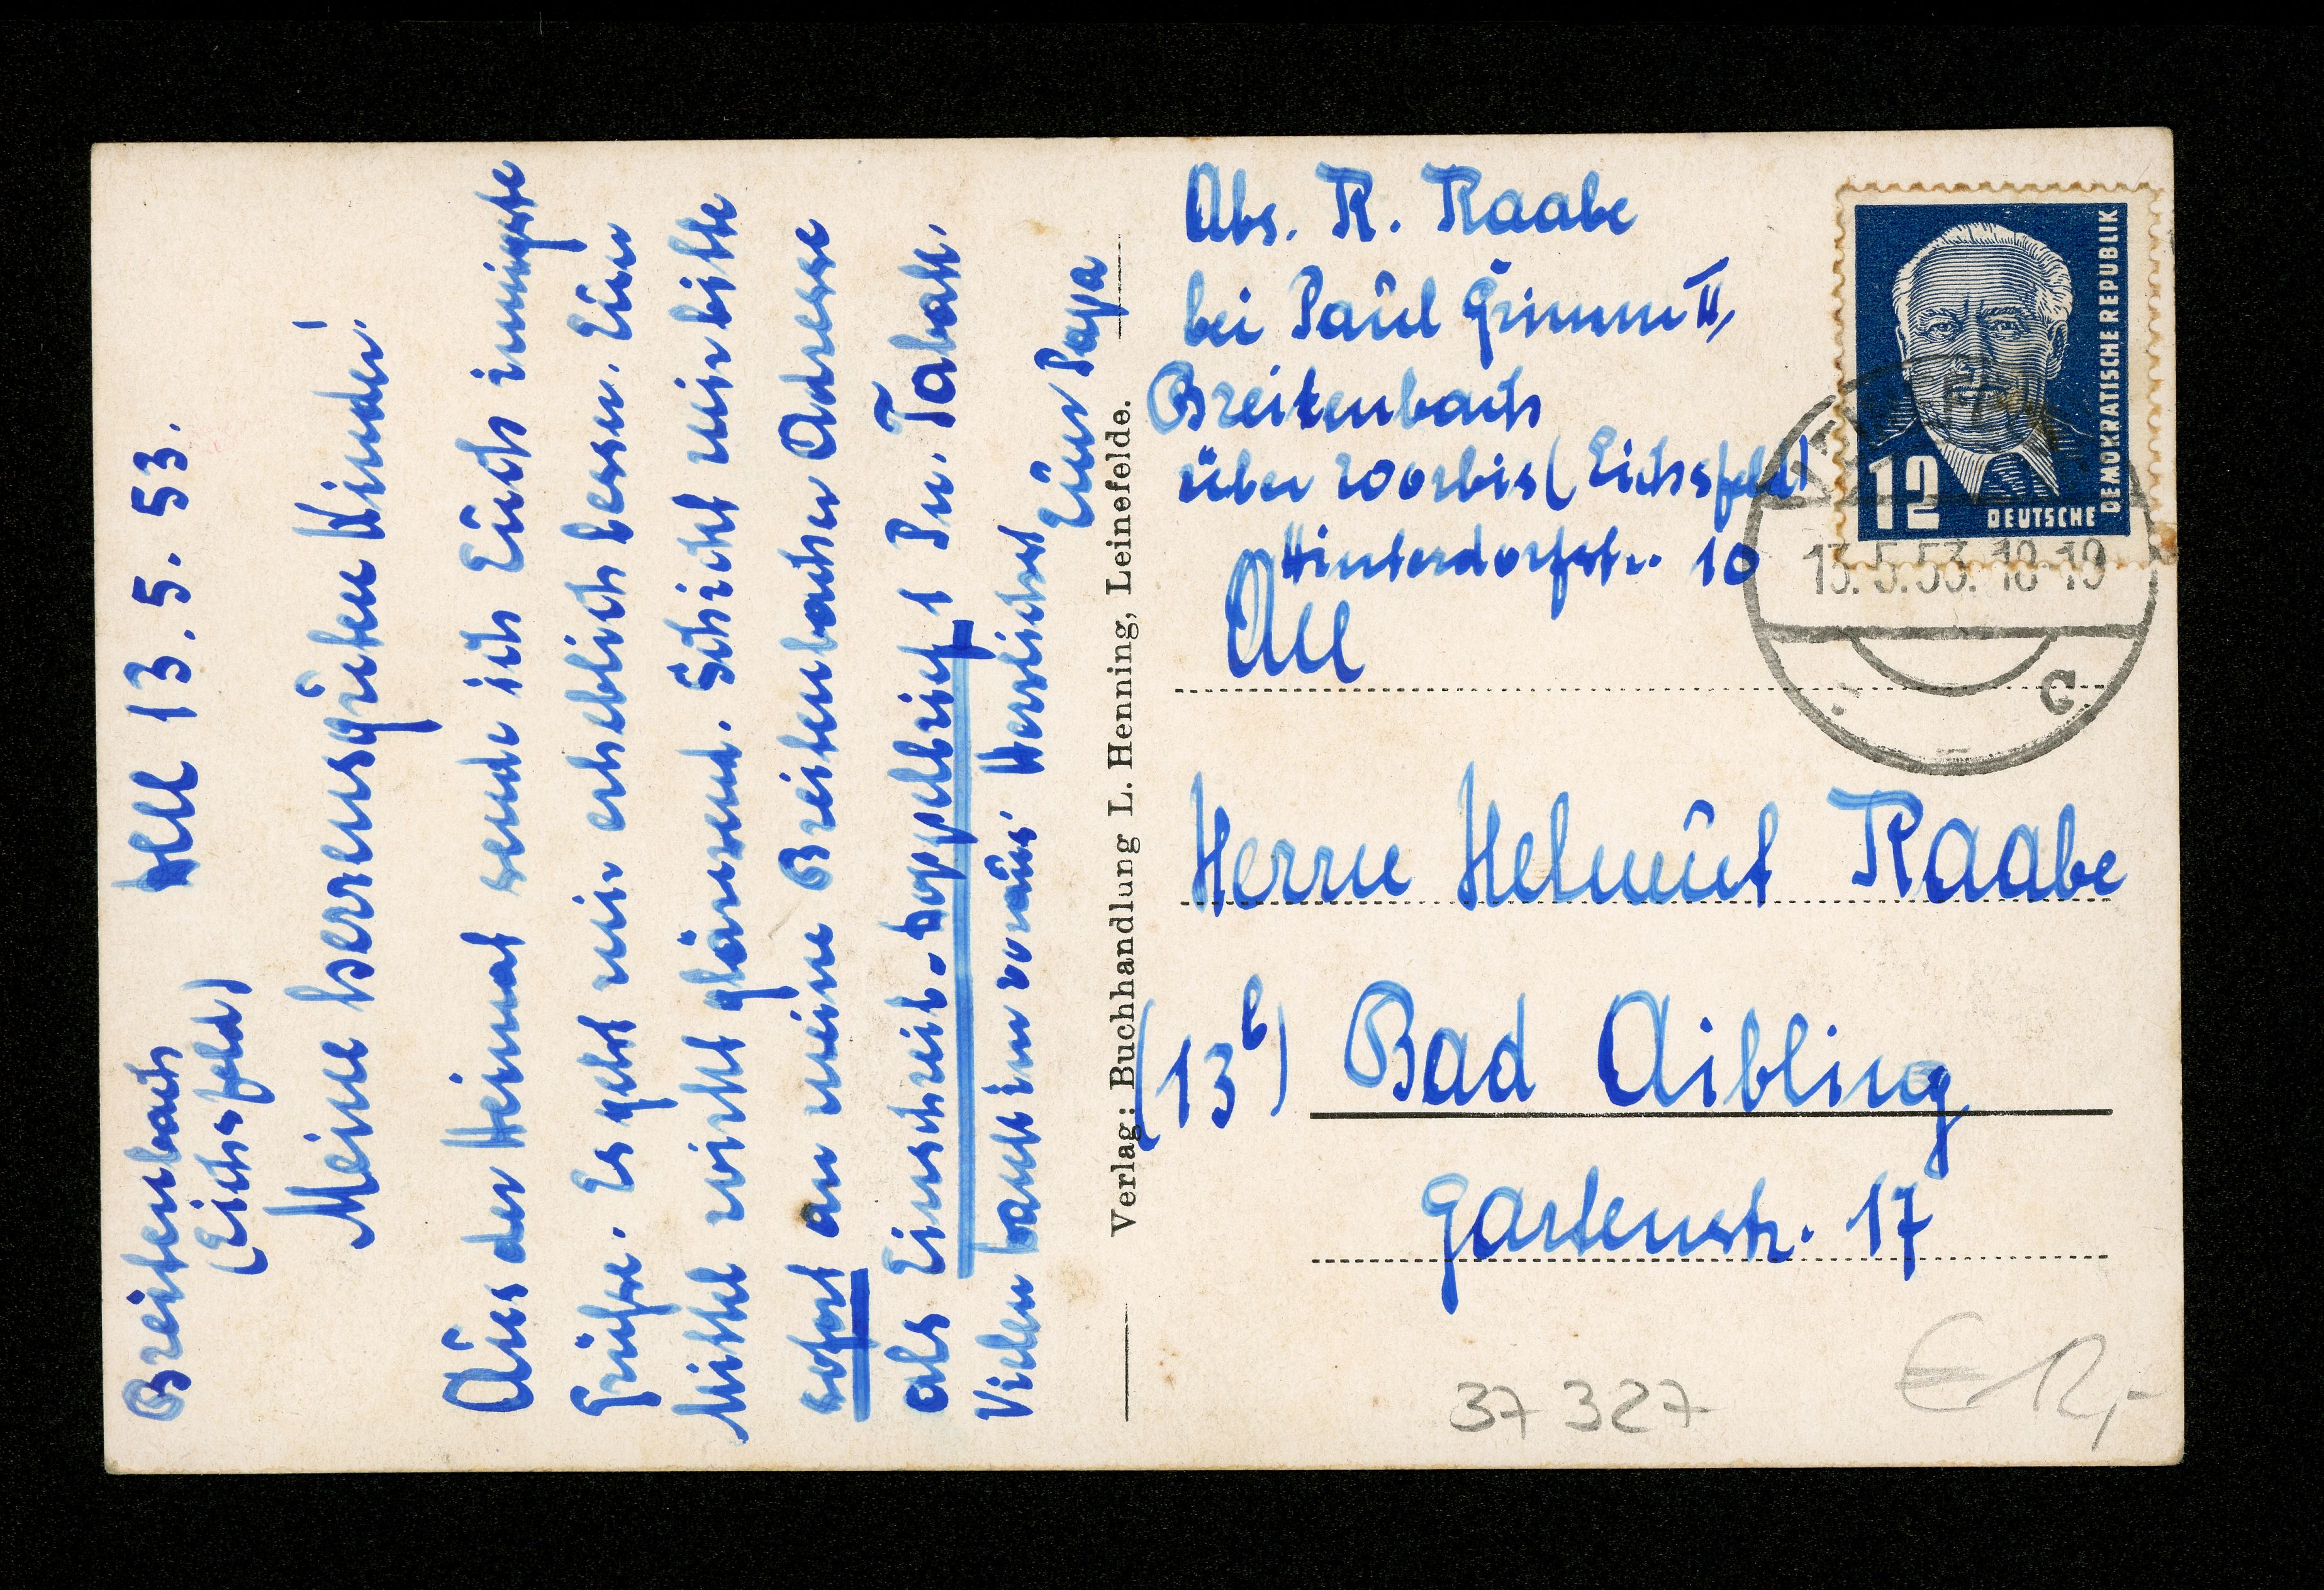 Breitenbach
(Eichsfeld)
den 13. 5. 53.
Meine herzensguten Kinder!
Aus der Heimat sende ich Euch innigste
Grüße. Es geht mir erheblich besser. Eure
Mittel wirkt glänzend. Schickt mir bitte
sofort an meine Breitenbacher Adresse
als Einschreib-Doppelbrief 1 Pr. Tabak.
Vielen Dank im voraus. Herzlichst
Euer Papa
Verlag: Buchhandlung L. Henning, Leinefelde.
Abs. R. Raabe
bei Paul Grimm II,
Breitenbach
über Worbis (Eichsfeld)
Hinterdorfstr. 10
An
Herrn Helmut Raabe
(13b) Bad Aibling
Gartenstr. 17
12
DEUTSCHE
DEMOKRATISCHE REPUBLIK
13.5.53. 18-19
C
37 327
€ 12,-